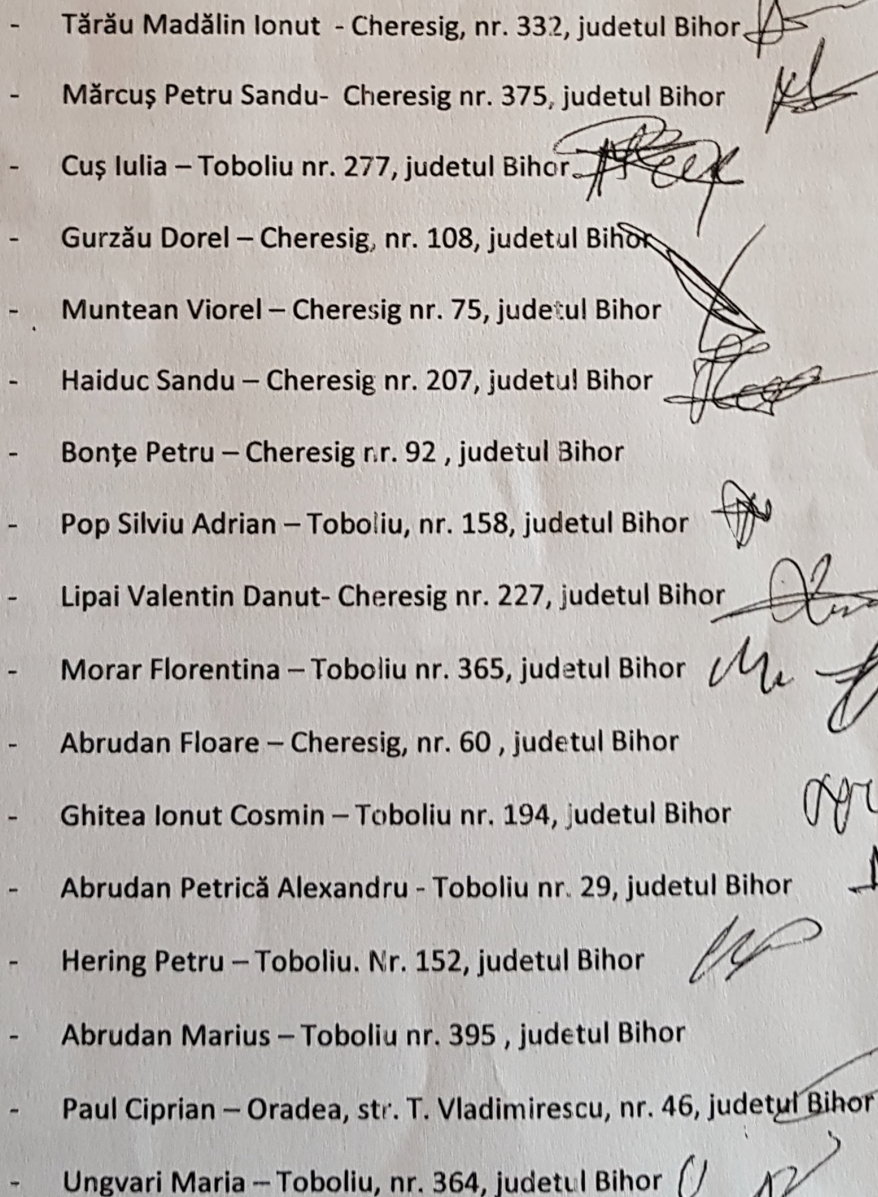 - Tărău Madălin Ionut - Cheresig, nr. 332, judetul Bihor
- Mărcuş Petru Sandu- Cheresig nr. 375, judetul Bihor
- Cuş Iulia – Toboliu nr. 277, judetul Bihor
- Gurzău Dorel – Cheresig, nr. 108, judetul Bihor
- Muntean Viorel – Cheresig nr. 75, judetul Bihor
- Haiduc Sandu – Cheresig nr. 207, judetul Bihor
- Bonţe Petru – Cheresig nr. 92 , judetul Bihor
- Pop Silviu Adrian – Toboliu, nr. 158, judetul Bihor
- Lipai Valentin Danut- Cheresig nr. 227, judetul Bihor
- Morar Florentina – Toboliu nr. 365, judetul Bihor
- Abrudan Floare – Cheresig, nr. 60 , judetul Bihor
- Ghitea Ionut Cosmin – Toboliu nr. 194, judetul Bihor
- Abrudan Petrică Alexandru - Toboliu nr. 29, judetul Bihor
- Hering Petru – Toboliu. Nr. 152, judetul Bihor
- Abrudan Marius – Toboliu nr. 395 , judetul Bihor
- Paul Ciprian – Oradea, str. T. Vladimirescu, nr. 46, judetul Bihor
- Ungvari Maria – Toboliu, nr. 364, judetul Bihor